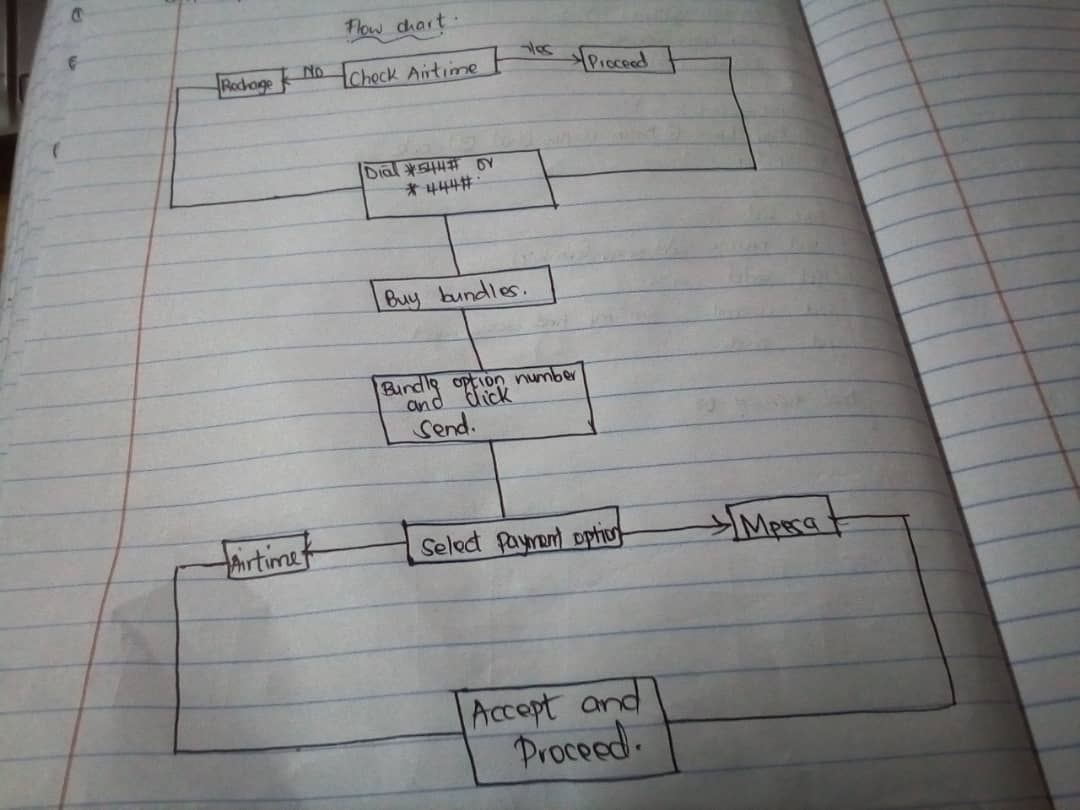 Flow chart.
Rechage No Check Airtime Yes Proceed
Dial *544# or
*444#.
Buy bundles.
Bundle option number
and click
Send.
Airtime Select Payment option Mpesa
Accept and
Proceed.